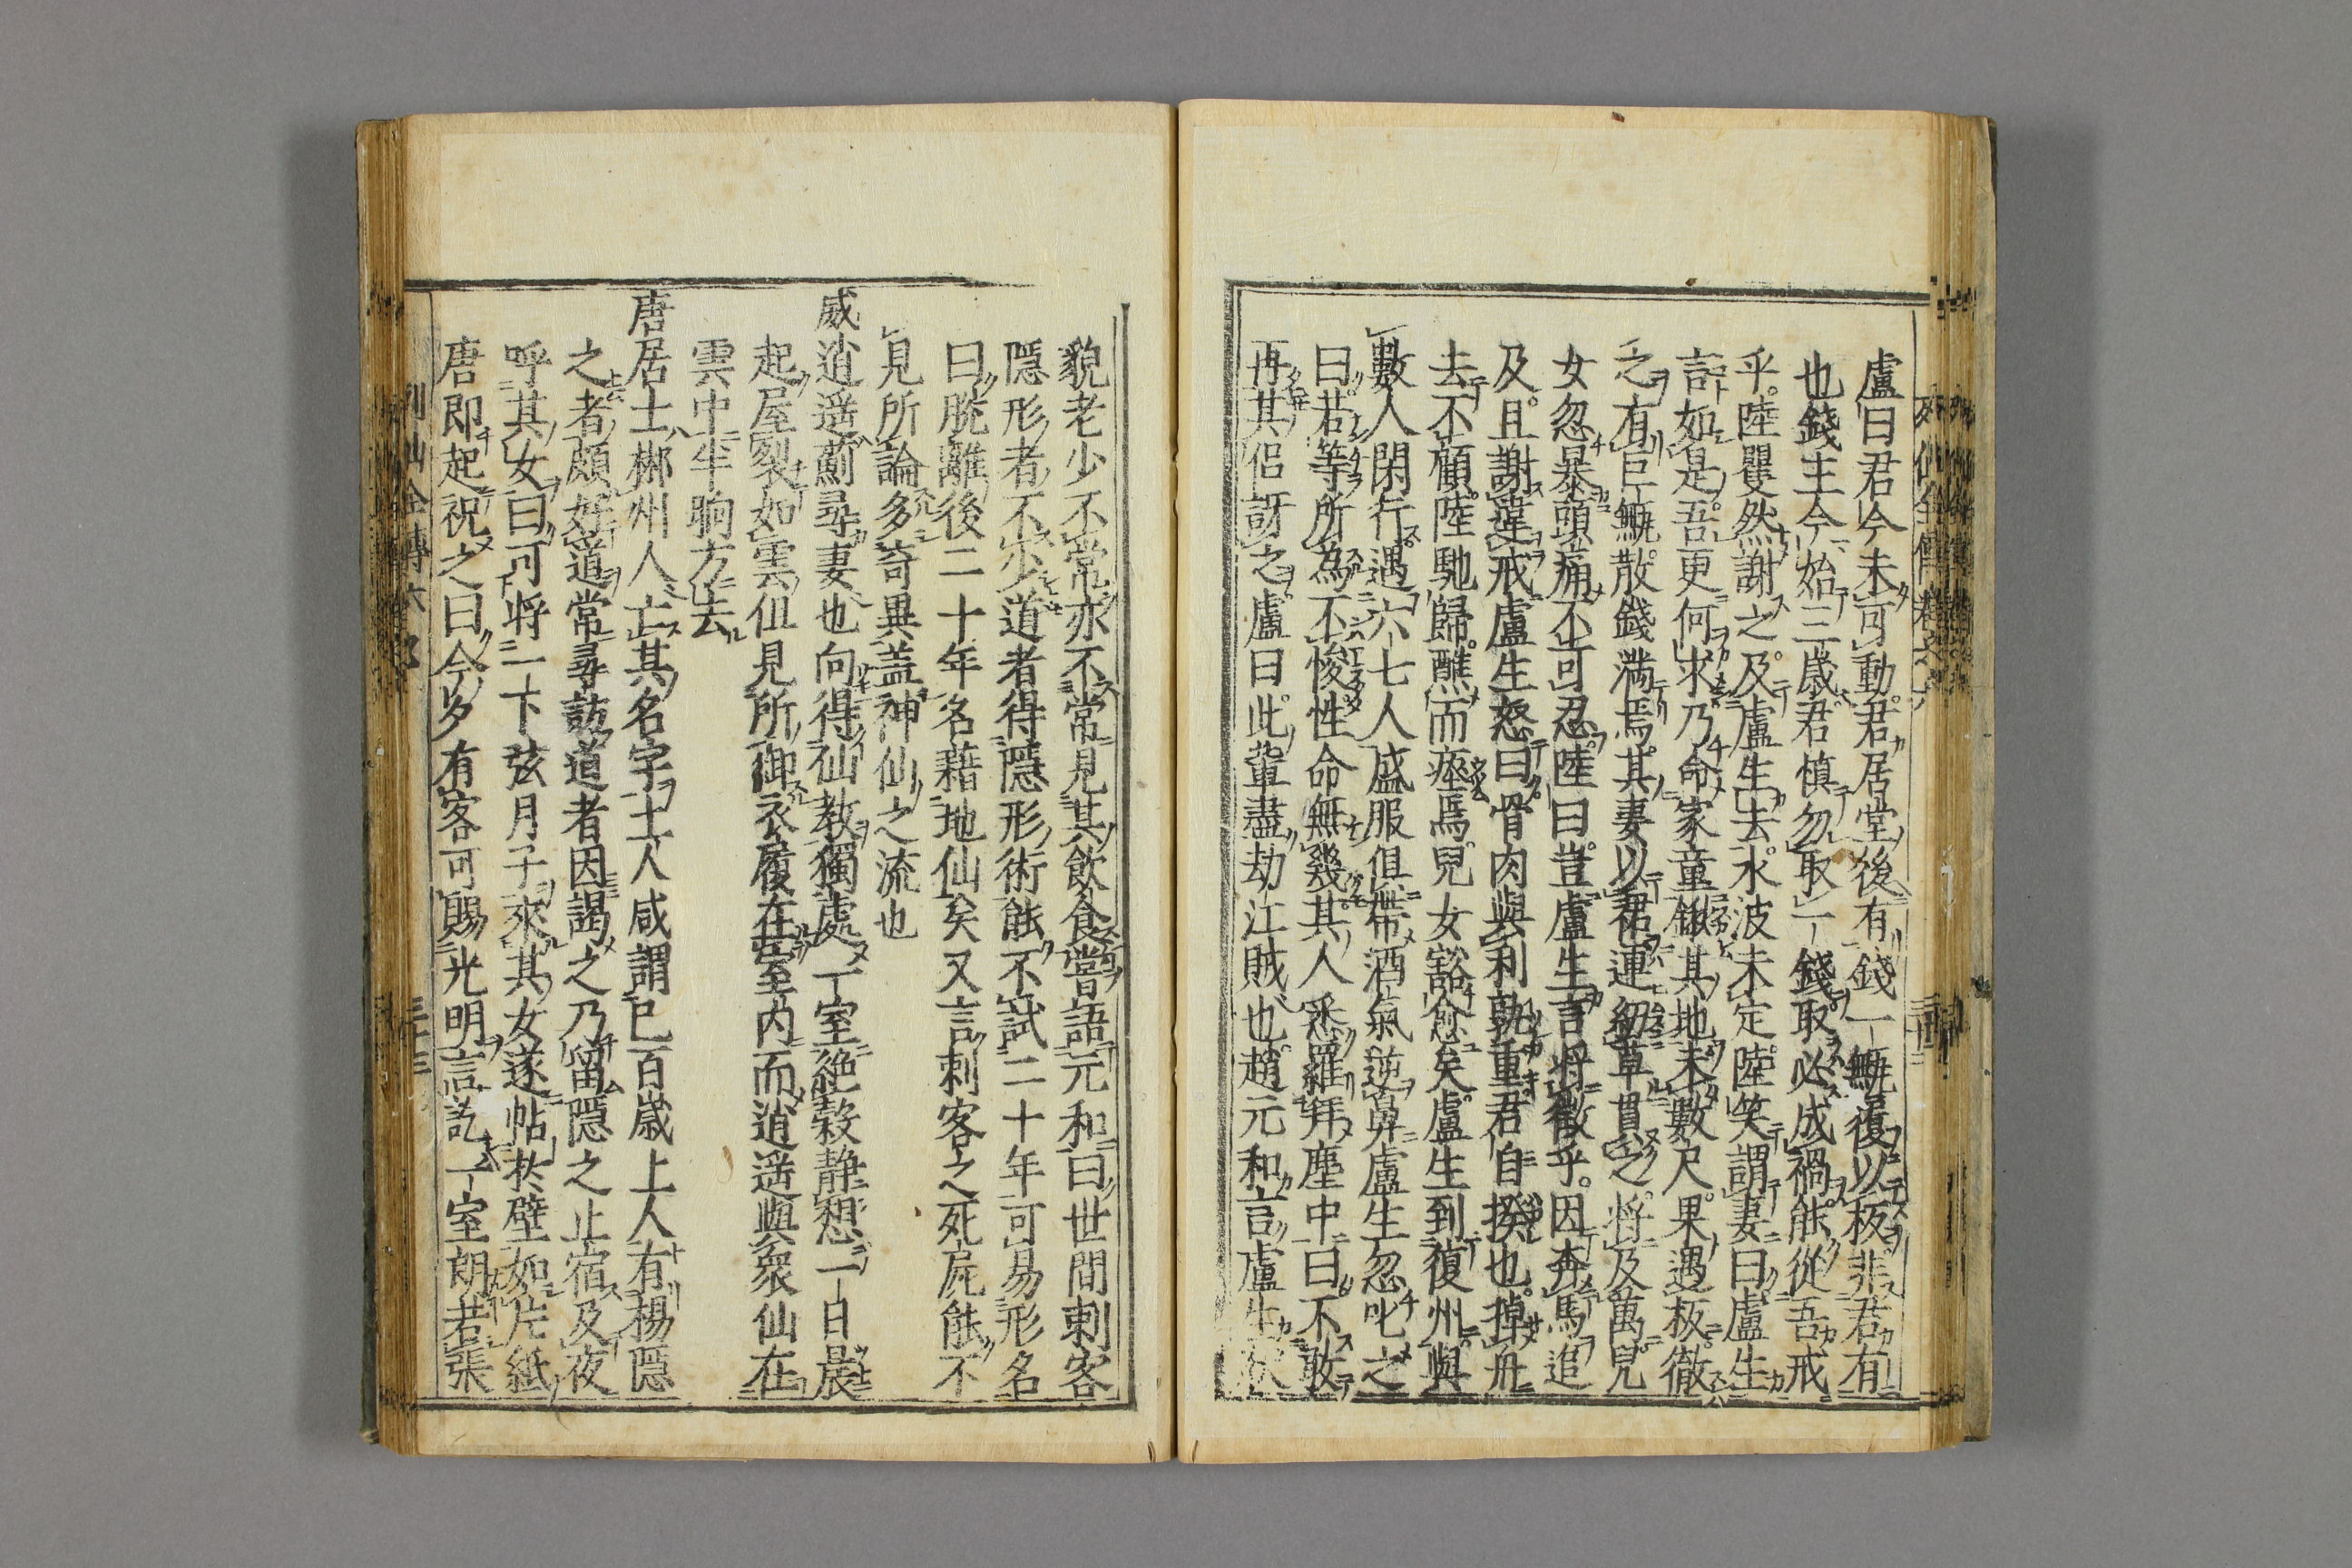 盧曰君今未可動君居堂後有錢一甒覆以板非君有
也錢主今始三歳君慎勿取一錢取必成禍能從吾戒
乎陸矍然謝之及盧生去水波未定陸笑謂妻曰盧生
言如是吾更何求乃命家童鍬其地未數尺果遇板徹
之有巨甒散錢満焉其妻以裙運紉草貫之将及萬兒
女忽暴頭痛不可忍陸曰豈盧生言将徴乎因奔馬追
及且謝違戒盧生怒曰骨肉與利孰重君自揆也棹舟
去不顧陸馳歸醮而瘞焉兒女豁愈矣盧生到復州與
數人閑行遇六七人盛服但帶酒氣逆鼻盧生忽叱之
曰若等所為不悛性命無幾其人悉羅拜塵中曰不敢
再其侣訝之盧曰此輩盡劫江賊也趙元和言盧生状
貌老少不常亦不常見其飲食嘗語元和曰世間刺客
隱形者不少道者得隱形術能不試二十年可易形名
曰脱離後二十年名藉地仙矣又言刺客之死屍能不
見所論多竒異盖神仙之流也
威逍遥薊尋妻也向得仙教獨處一室絶穀静想一日晨
起屋裂如雲但見所御衣履在室内而逍遥與衆仙在
雲中半晌方去
唐居士郴州人亡其名字士人咸謂已百歳上人有楊隱
之者頗好道常尋訪道者因謁之乃留隱之止宿及夜
呼其女曰可将一下弦月子來其女遂帖於壁如片紙
唐即起祝之曰今夕有客可賜光明言訖一室朗若張